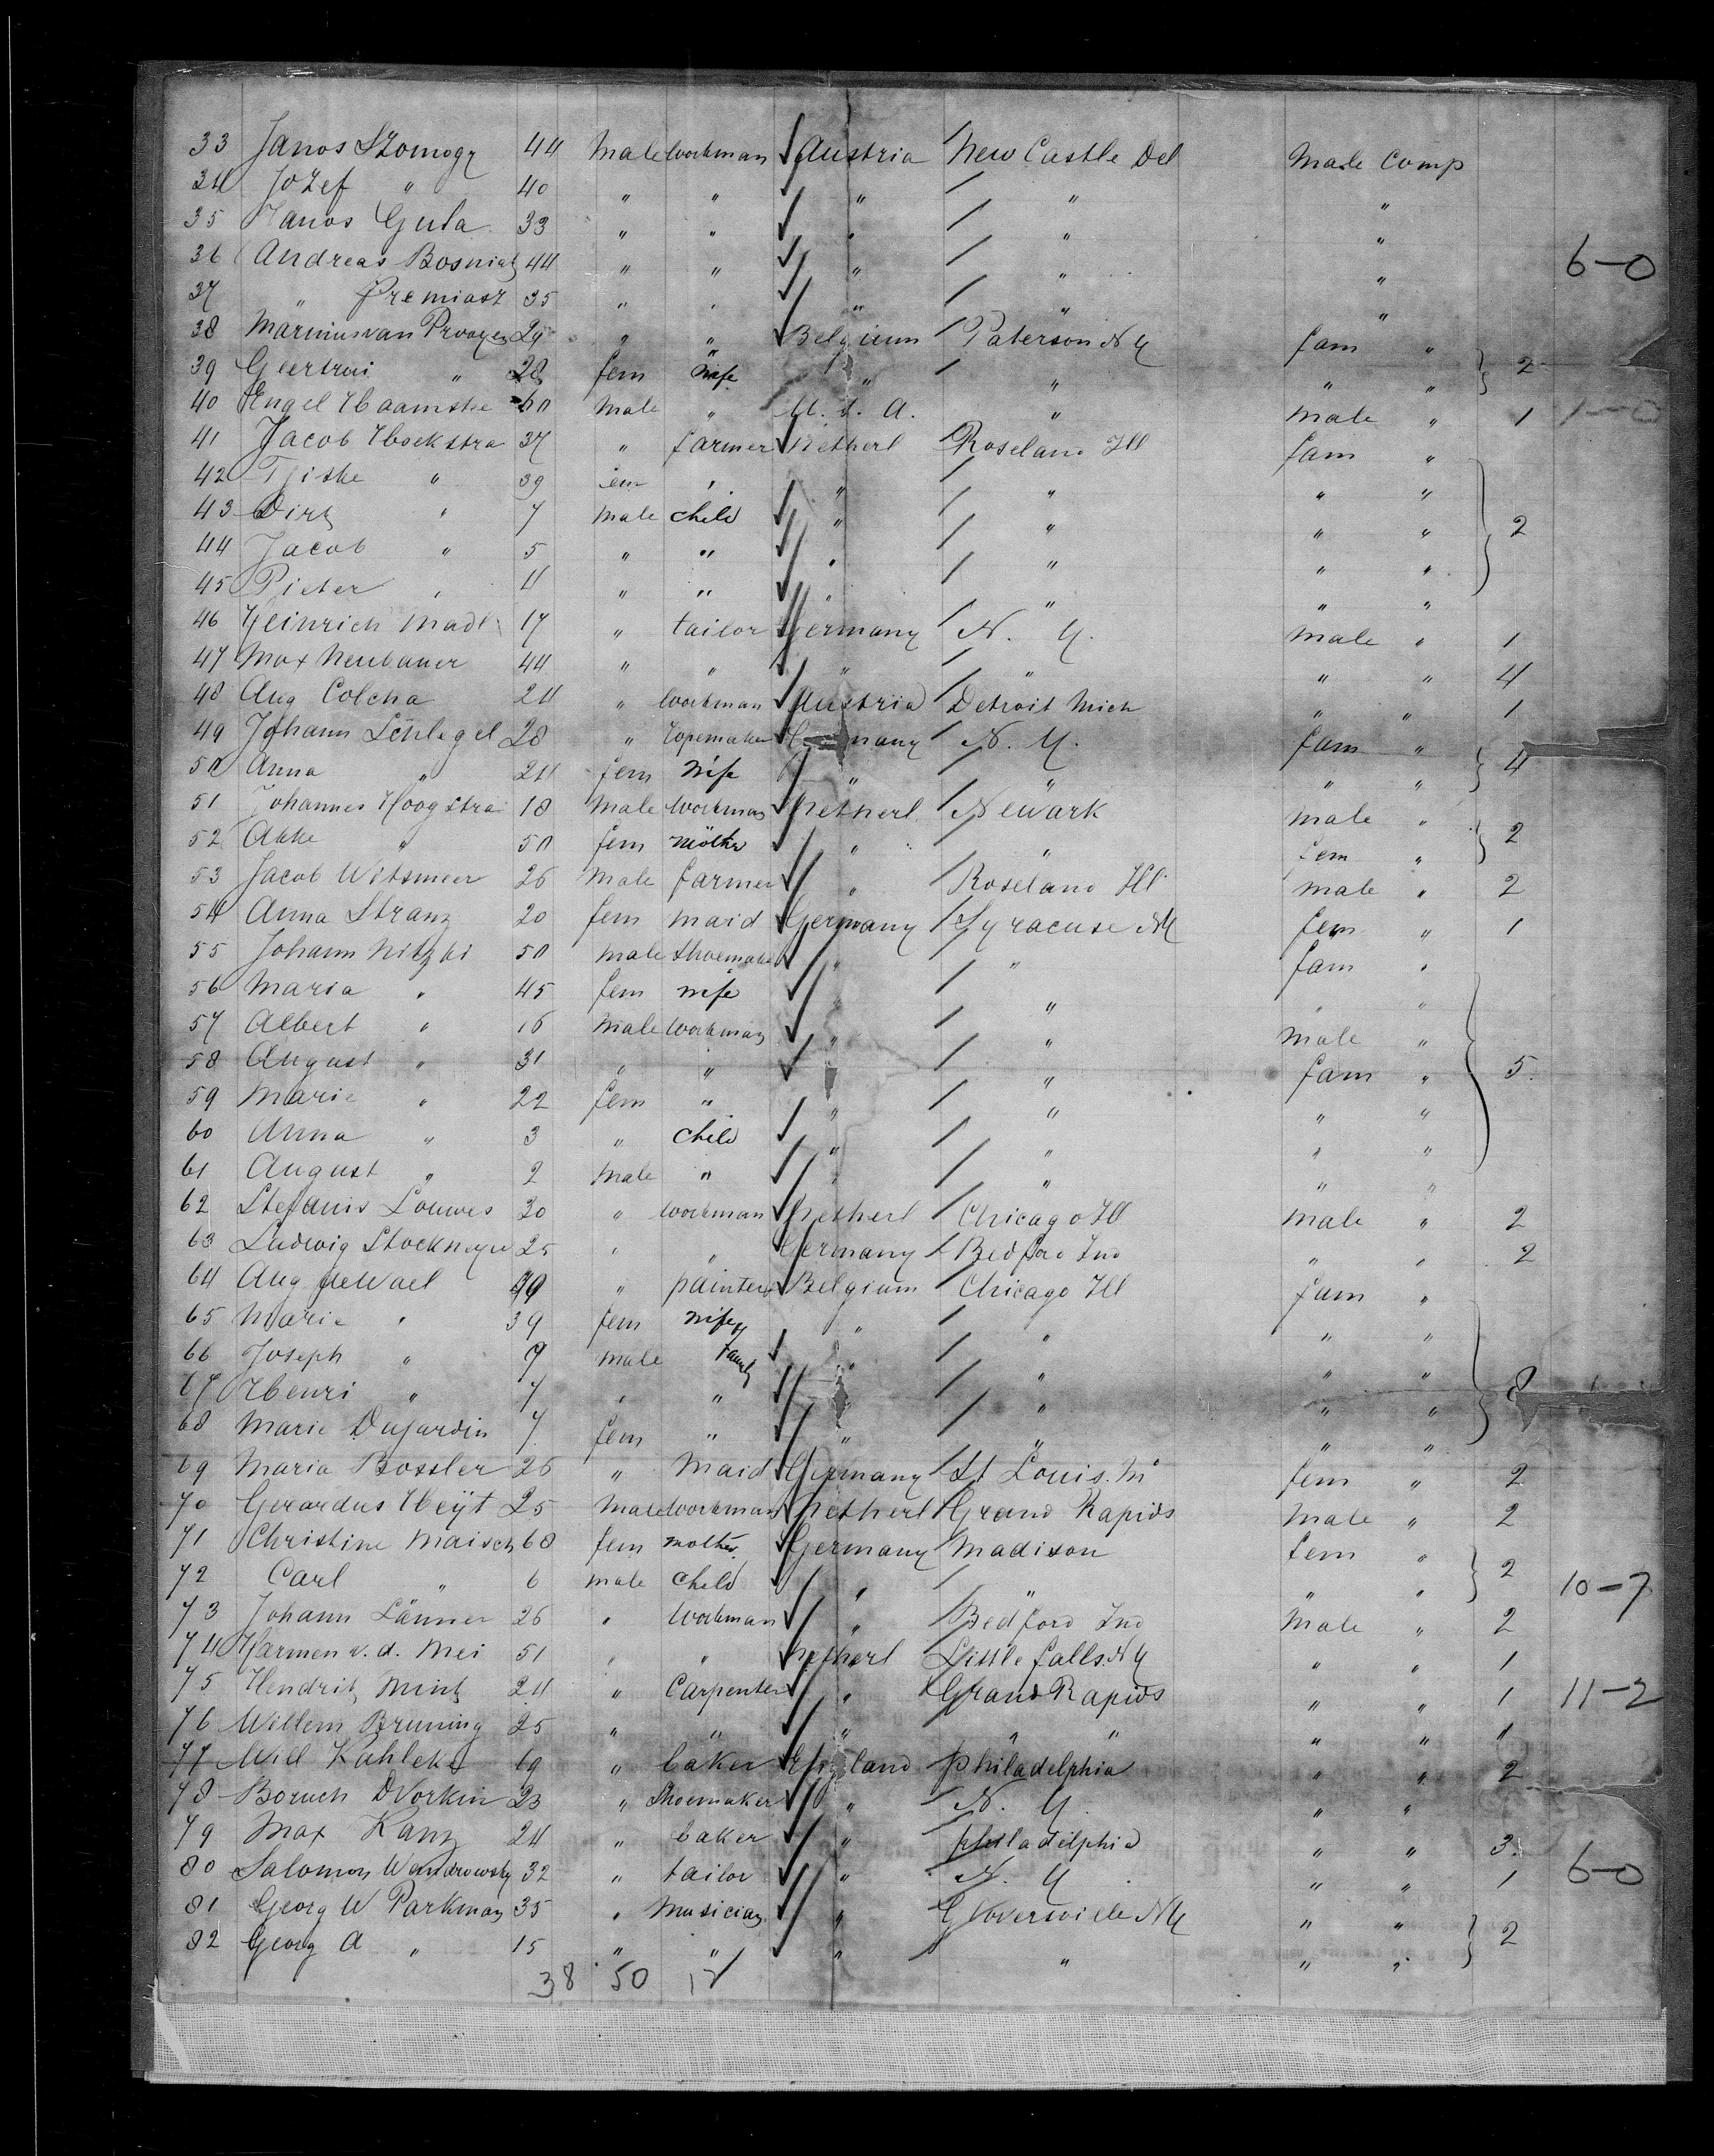 33 Janos Szomogy 44 Male Workman Austria New Castle Del Male Comp
34 Jozef " 40 " " " " "
35 Janos Gula 33 " " " " "
36 Andreas Bosniak 44 " " " " " 6-0
37 " Premiasz 35 " " " " "
38 Marinus van Prooyen 29 " " Belgium Paterson N Y fam "
39 Geertrui " 28 fem wife " " " " 2
40 Engel Haamske 60 Male " U. S. A. " Male " 1 1-0
41 Jacob Hoekstra 37 " farmer Netherl Roseland Ill fam "
42 Tjiske " 39 fem " " " " "
43 Dirk " 7 Male child " " " " 2
44 Jacob " 5 " " " " " "
45 Pieter " 4 " " " " " "
46 Heinrich Madl 17 " tailor Germany N. Y. Male " 1
47 Max Neubauer 44 " " " " " " 4
48 Aug Colcha 24 " Workman Austria Detroit Mich " " 1
49 Johann Schlegel 28 " Ropemaker Germany N. Y. fam "
50 Anna " 24 fem wife " " " " 4
51 Johannes Hoogstra 18 Male Workman Netherl Newark Male "
52 Akke " 50 fem mother " " fem " 2
53 Jacob Witsmeer 26 Male farmer " Roseland Ill Male " 2
54 Anna Stranz 20 fem maid Germany Syracuse NY fem " 1
55 Johann Nitzki 50 male Shoemaker " " fam "
56 Maria " 45 fem wife " " " "
57 Albert " 16 Male Workman " " Male "
58 August " 31 " " " " fam " 5.
59 Marie " 22 fem " " " " "
60 Anna " 3 " child " " " "
61 August " 2 Male " " " " "
62 Stefanis Louwes 30 " Workman Netherl Chicago Ill Male " 2
63 Ludwig Stockmeyer 25 " " Germany Bedford Ind " " 2
64 Aug de Wael 40 " painter Belgium Chicago Ill fam "
65 Marie " 39 fem wife " " " "
66 Joseph " 9 male family " " " "
67 Henri " 7 " " " " " " 8
68 Marie Dujardin 7 fem " " " " "
69 Maria Bossler 26 " Maid Germany St Louis. Mo fem " 2
70 Gerardus Heijt 25 Male Workman Netherl Grand Rapids Male " 2
71 Christine Maisch 68 fem mother Germany Madison fem "
72 Carl " 6 male child " " " " 2 10-7
73 Johann Länner 26 " Workman " Bedford Ind Male " 2
74 Harmen v. d. Mei 51 " " Netherl Little falls. NY " " 1
75 Hendrik Mink 24 " Carpenter " Grand Rapids " " 1 11-2
76 Willem Bruning 25 " " " " " " " "
77 Will Kahleke 69 " baker land philadelphia " " 2
78 Boruch DVorkin 23 " Shoemaker " N. Y. " "
79 Max Kanz 24 " baker " philadelphia " " 3.
80 Salomon Wandrowsky 32 " tailor " N. Y. " " 1 6-0
81 Georg W Parkman 35 " Musician " Gloversville NY " "
82 Georg A " 15 " " " " " " 2
38 50 12